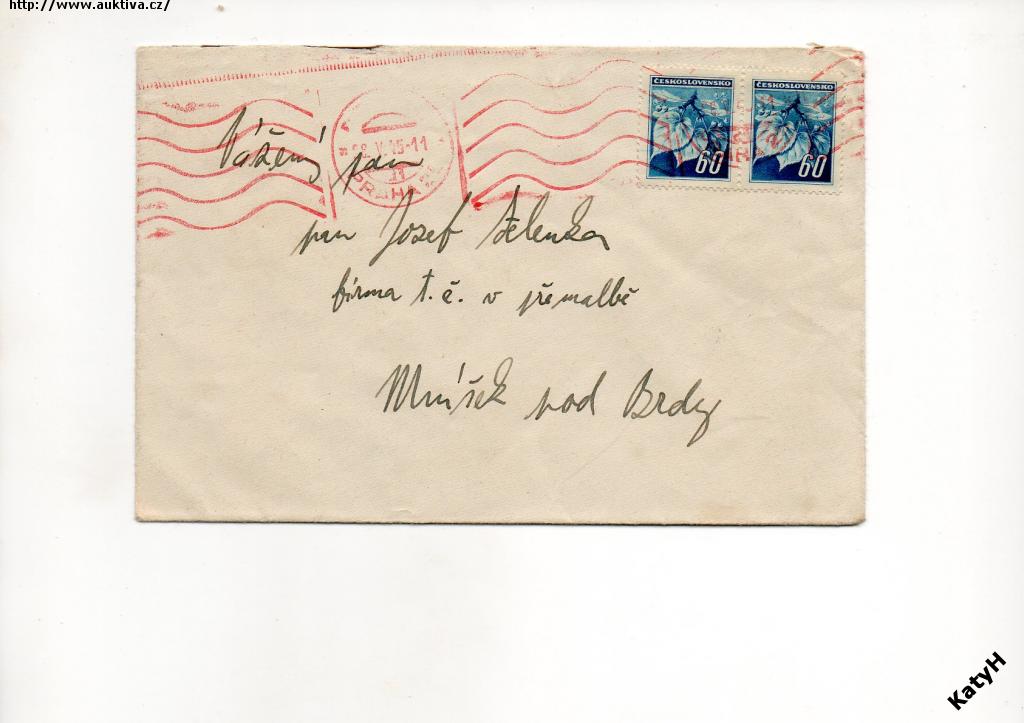 http://www.auktiva.cz/
ČESKOSLOVENSKO ČESKOSLOVENSKO
60 60
V.45-11
PRAHA
Vážený pan
pan Josef Zelenka
firma t. č. v přemalbě
Mníšek pod Brdy
KatyH